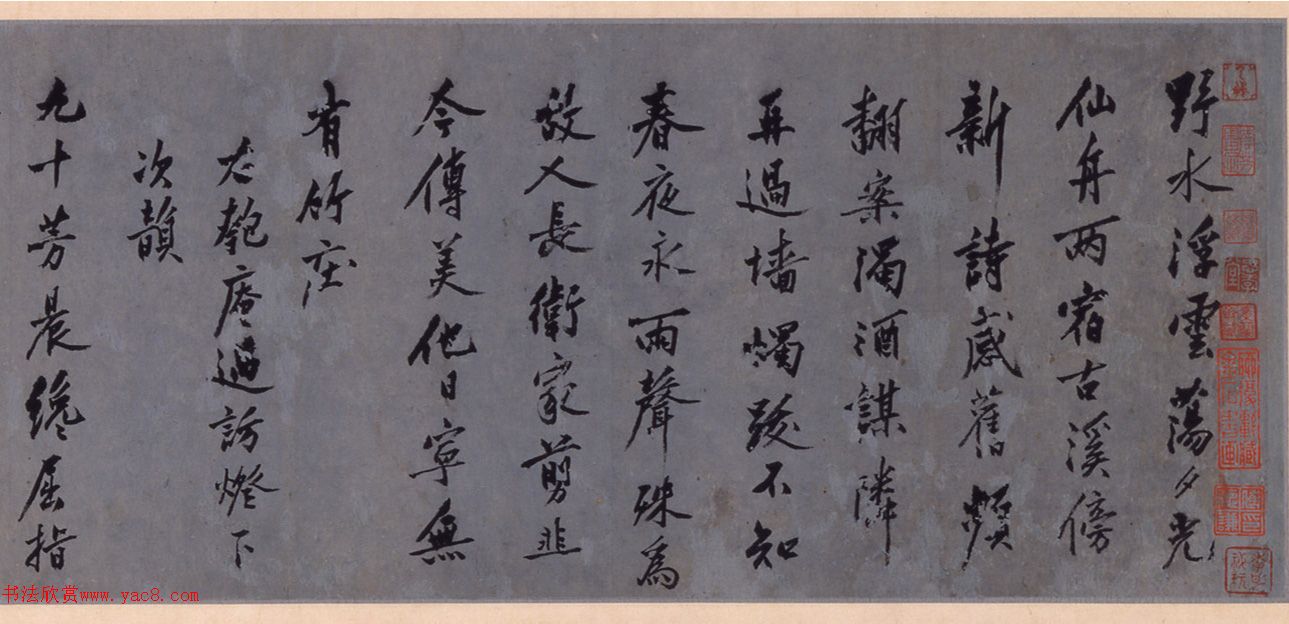 野水浮雲蕩夕光
仙舟两宿古溪傍
新詩感舊頻
翻案濁酒謀隣
再過墻燭跋不知
春夜永雨聲殊為
故人長衛家剪韭
今傳美他日寧無
有竹莊
右匏庵過訪燈下
次韻
九十芳晨纔屈指
书法欣赏www.yac8.com